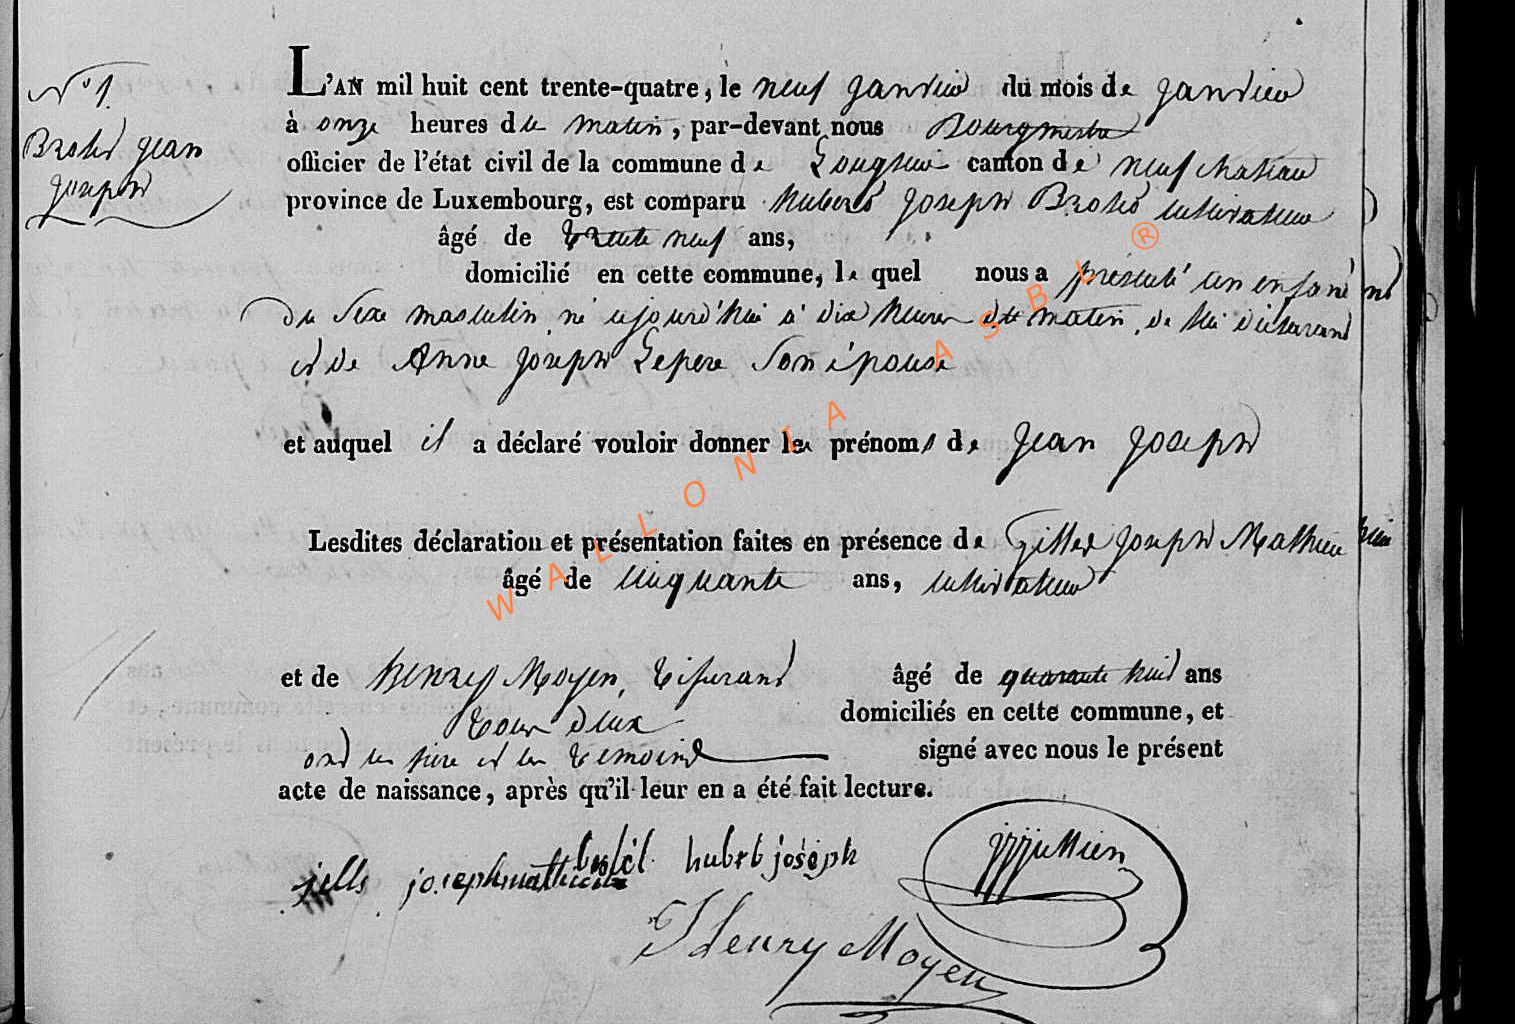 N° 1.
Brolet Jean
Joseph
L'AN mil huit cent trente-quatre, le neuf Janvier du mois de Janvier
à onze heures du matin, par-devant nous Bourgmestre
officier de l'état civil de la commune de Longlier canton de neufchateau
province de Luxembourg, est comparu hubert Joseph Brolet cultivateur
âgé de trente neuf ans,
domicilié en cette commune, lequel nous a présenté un enfant
du sexe masculin, né cejourd'hui à dix heures du matin, de lui déclarant
et de Anne Joseph Lepere son épouse
et auquel il a déclaré vouloir donner les prénoms de Jean Joseph
Lesdites déclaration et présentation faites en présence de Gilles Joseph Mathieu
âgé de cinquante ans, cultivateur
et de henry Moyen, tisserand âgé de quarante huit ans
tous deux domiciliés en cette commune, et
ont les père et les temoins signé avec nous le présent
acte de naissance, après qu'il leur en a été fait lecture.
jille joseph mathieu
hubert joseph
Henry Moyen
WALLONIA ASBL ®